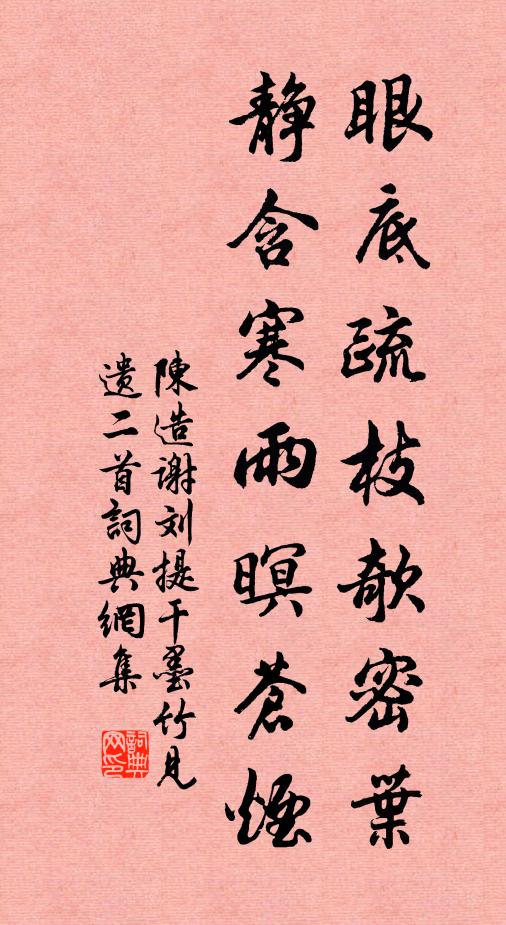 眼底疏枝欹密葉
静含寒雨暝蒼煙
陳造谢刘提干墨竹見
遗二首詞典網集
詞典
网印